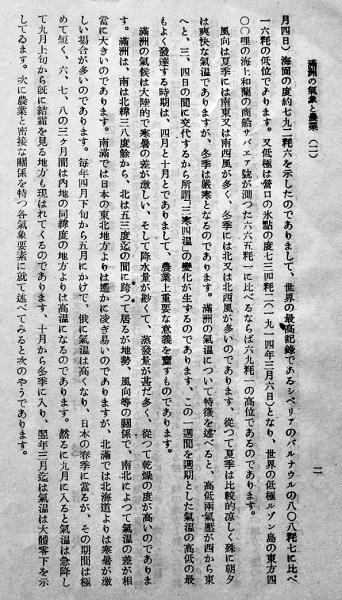 滿洲の氣象と農業（二）
二
月四日）海面の度約七九二粍六を示したのでありまして、世界の最高記錄であるシベリアのバルナウルの八〇八粍七に比べ
一六粍の低位であります。又低極は營口の氷點の度七三四粍二（一九一四年三月六日）となり、世界の低極ルソン島の東方四
〇〇哩の海上和蘭の商船サバエア號が測つた六六五粍一に比べるならば六九粍一の高位であるのであります。
風向は夏季には南東又は南西風が多く、冬季には北又は北西風が多いのであります、從つて夏季は比較的凉しく殊に朝夕
は爽快な氣溫でありますが、冬季は嚴寒となるのであります。滿洲の氣溫について特徵を述べると、高低兩氣壓が西から東
へと、三、四日の間に交代するから所謂「三寒四溫」の變化が生ずるのであります、この一週間を週期とした氣溫の高低の最
もよく發達する時期は、四月と十月とでありまして、農業上重要な意義を齎すものであります。
滿洲の氣候は大陸的で寒暑の差が激しい、そして降水量が尠くて、蒸發量が甚だ多く、從つて乾燥の度が高いのでありま
す。滿洲は、南は北緯三八度餘から、北は五三度迄の間に跨つて居るが地勢、風向等の關係で、南北によつて氣溫の差が相
當に大きいのであります。南滿では日本の東北地方よりは遙かに凌ぎ易いのでありますが、北滿では北海道よりは寒暑が激
しい場合が多いのであります。每年四月下旬から五月にかけて、俄に氣溫は高くなり、日本の春季に當るが、その期間は極
めて短く、六、七、八の三ケ月間は內地の同緯度の地方よりは高溫になるのであります。然るに九月に入ると氣溫は急降し
て九月上旬から旣に結霜を見る地方も現はれてくるのであります、十月から冬季に入り、翌年三月迄は氣溫は大體零下を示
してゐます。次に農業と密接な關係を持つ各氣象要素に就て述べてみると次のやうであります。